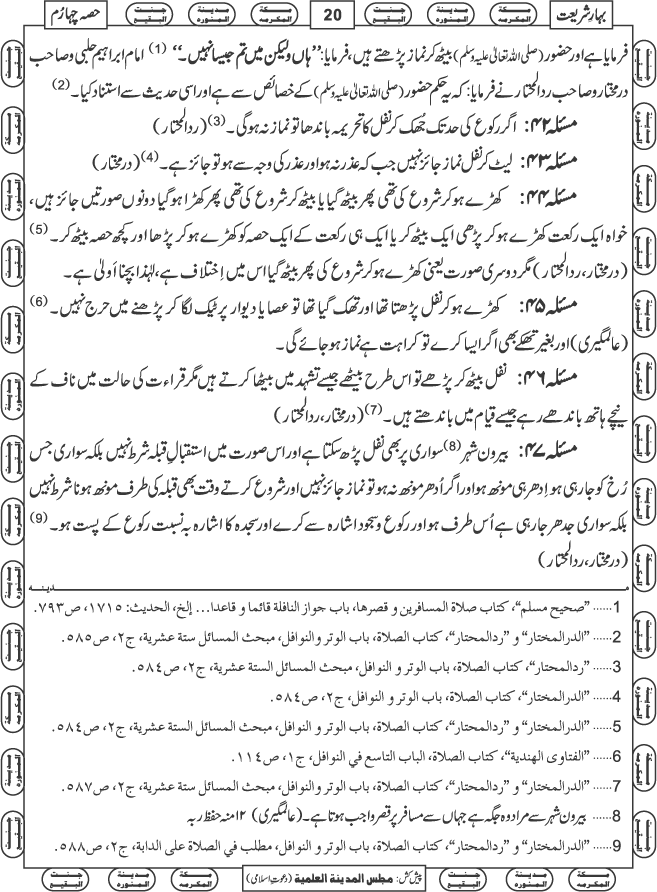 بہارِ شریعت
20
حصہ چہارم
فرمایا ہے اور حضور (صلی اللہ تعالیٰ علیہ وسلم) بیٹھ کر نماز پڑھتے ہیں، فرمایا: ’’ہاں ولیکن میں تم جیسا نہیں۔‘‘ (1) امام ابراہیم حلبی و صاحب
درمختار و صاحب ردالمحتار نے فرمایا: کہ یہ حکم حضور (صلی اللہ تعالیٰ علیہ وسلم) کے خصائص سے ہے اور اسی حدیث سے استناد کیا۔ (2)
مسئلہ ۴۲: اگر رکوع کی حد تک جُھک کر نفل کا تحریمہ باندھا تو نماز نہ ہوگی۔ (3) (ردالمحتار)
مسئلہ ۴۳: لیٹ کر نفل نماز جائز نہیں جب کہ عذر نہ ہو اور عذر کی وجہ سے ہو تو جائز ہے۔ (4) (درمختار)
مسئلہ ۴۴: کھڑے ہو کر شروع کی تھی پھر بیٹھ گیا یا بیٹھ کر شروع کی تھی پھر کھڑا ہوگیا دونوں صورتیں جائز ہیں،
خواہ ایک رکعت کھڑے ہو کر پڑھی ایک بیٹھ کر یا ایک ہی رکعت کے ایک حصہ کو کھڑے ہو کر پڑھا اور کچھ حصہ بیٹھ کر۔ (5)
(درمختار، ردالمحتار) مگر دوسری صورت یعنی کھڑے ہو کر شروع کی پھر بیٹھ گیا اس میں اِختلاف ہے، لہٰذا بچنا اَولیٰ ہے۔
مسئلہ ۴۵: کھڑے ہو کر نفل پڑھتا تھا اور تھک گیا تھا تو عصا یا دیوار پر ٹیک لگا کر پڑھنے میں حرج نہیں۔ (6)
(عالمگیری) اور بغیر تھکے بھی اگر ایسا کرے تو کراہت ہے نماز ہو جائے گی۔
مسئلہ ۴۶: نفل بیٹھ کر پڑھے تو اس طرح بیٹھے جیسے تشہد میں بیٹھا کرتے ہیں مگر قراءت کی حالت میں ناف کے
نیچے ہاتھ باندھے رہے جیسے قیام میں باندھتے ہیں۔ (7) (درمختار، ردالمحتار)
مسئلہ ۴۷: بیرونِ شہر (8) سواری پر بھی نفل پڑھ سکتا ہے اور اس صورت میں استقبالِ قبلہ شرط نہیں بلکہ سواری جس
رُخ کو جا رہی ہو ادھر ہی مونھ ہو اور اگر اُدھر مونھ نہ ہو تو نماز جائز نہیں اور شروع کرتے وقت بھی قبلہ کی طرف مونھ ہونا شرط نہیں
بلکہ سواری جدھر جا رہی ہے اُس طرف ہو اور رکوع و سجود اشارہ سے کرے اور سجدہ کا اشارہ بہ نسبت رکوع کے پست ہو۔ (9)
(درمختار، ردالمحتار)
1...... ”صحيح مسلم“، كتاب صلاة المسافرين و قصرها، باب جواز النافلة قائما و قاعدا... إلخ، الحديث: ١٧١٥، ص٧٩٣.
2...... ”الدرالمختار“ و ”ردالمحتار“، كتاب الصلاة، باب الوتر والنوافل، مبحث المسائل ستة عشرية، ج٢، ص٥٨٥.
3...... ”ردالمحتار“، كتاب الصلاة، باب الوتر و النوافل، مبحث المسائل الستة عشرية، ج٢، ص٥٨٤.
4...... ”الدرالمختار“، كتاب الصلاة، باب الوتر و النوافل، ج٢، ص٥٨٤.
5...... ”الدرالمختار“ و ”ردالمحتار“، كتاب الصلاة، باب الوتر و النوافل، مبحث المسائل الستة عشرية، ج٢، ص٥٨٤.
6...... ”الفتاوى الهندية“، كتاب الصلاة، الباب التاسع في النوافل، ج١، ص١١٤.
7...... ”الدرالمختار“ و ”ردالمحتار“، كتاب الصلاة، باب الوتر و النوافل، مبحث المسائل ستة عشرية، ج٢، ص٥٨٧.
8...... بیرونِ شہر سے مراد وہ جگہ ہے جہاں سے مسافر پر قصر واجب ہوتا ہے۔ (عالمگیری) ۱۲ منہ حفظ ربہ
9...... ”الدرالمختار“ و ”ردالمحتار“، كتاب الصلاة، باب الوتر و النوافل، مطلب في الصلاة على الدابة، ج٢، ص٥٨٨.
پیش کش: مجلس المدينة العلمية (دعوتِ اسلامی)